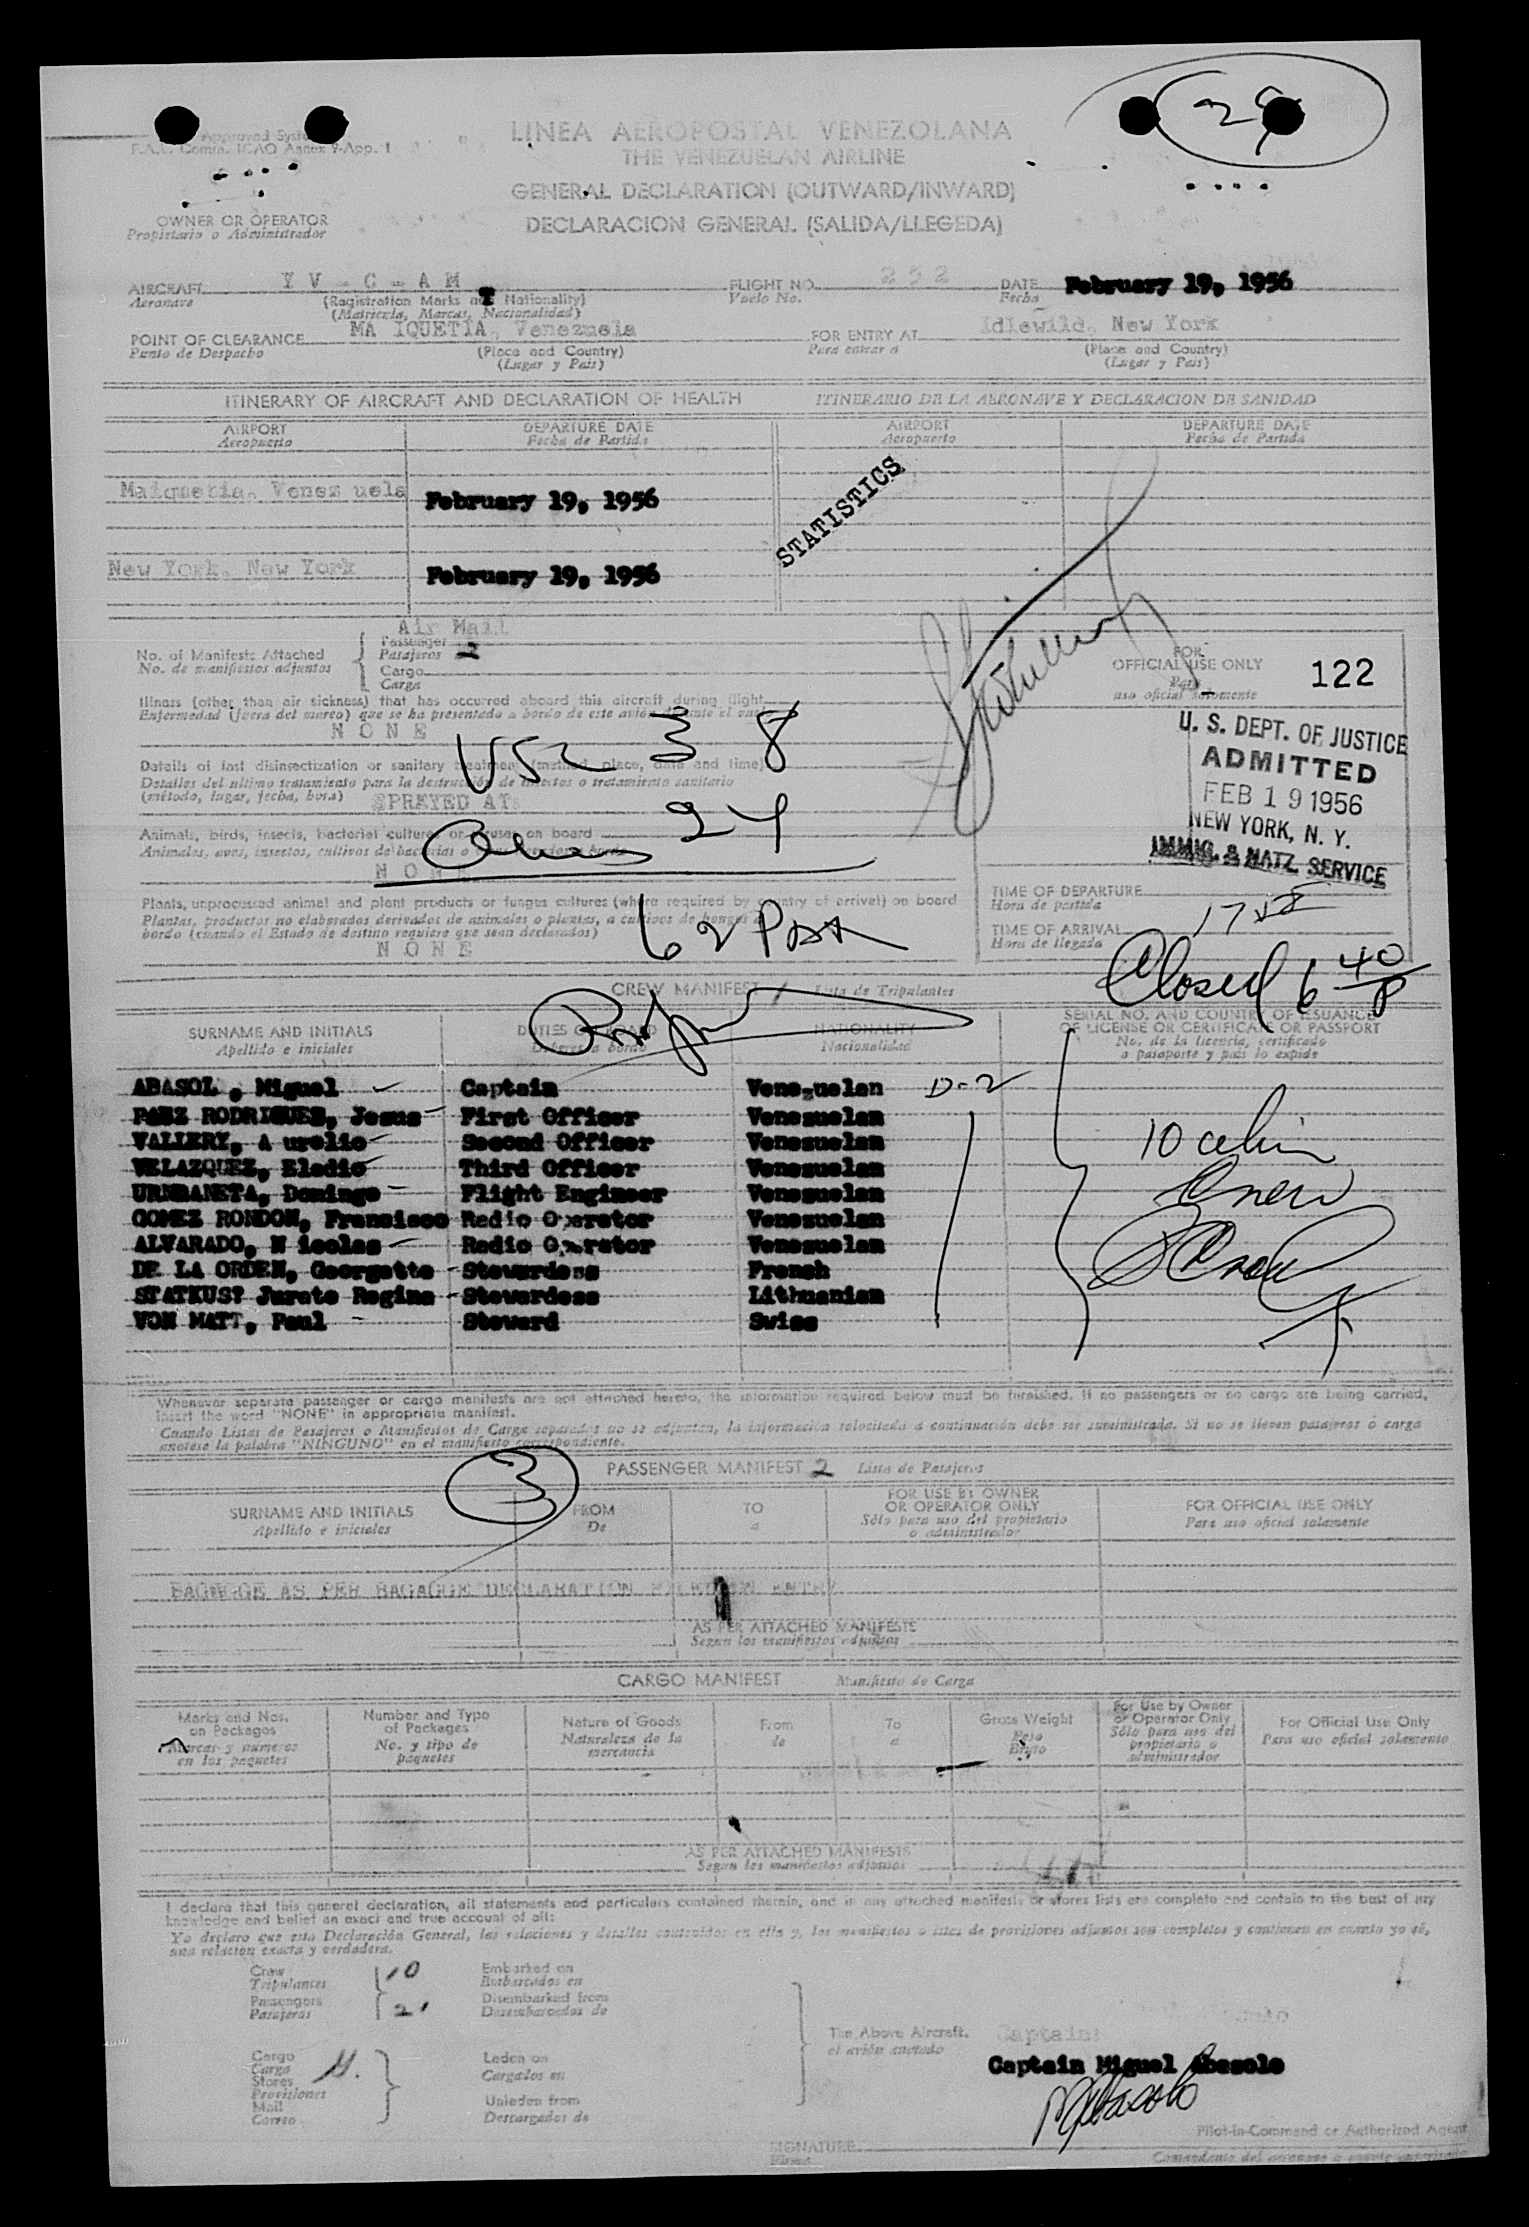 29
Approved
F.A.L. Comm. ICAO Annex 9-App. 1
LINEA AEROPOSTAL VENEZOLANA
THE VENEZUELAN AIRLINE
GENERAL DECLARATION (OUTWARD/INWARD)
DECLARACION GENERAL (SALIDA/LLEGEDA)
OWNER OR OPERATOR
Propietario o Administrador
AIRCRAFT Y V - C - A M FLIGHT NO. 252 DATE February 19, 1956
Aeronave (Registration Marks and Nationality) Vuelo No. Fecha
(Matricula, Marcas, Nacionalidad)
POINT OF CLEARANCE MA IQUETIA, Venezuela FOR ENTRY AT Idlewild, New York
Punto de Despacho (Place and Country) Para entrar a (Place and Country)
(Lugar y Pais) (Lugar y Pais)
ITINERARY OF AIRCRAFT AND DECLARATION OF HEALTH ITINERARIO DE LA AERONAVE Y DECLARACION DE SANIDAD
AIRPORT DEPARTURE DATE AIRPORT DEPARTURE DATE
Aeropuerto Fecha de Partida Aeropuerto Fecha de Partida
Maiquetia, Venez uela February 19, 1956
STATISTICS
New York, New York February 19, 1956
Air Mail
No. of Manifests Attached Passenger
No. de manifiestos adjuntos Pasajeros 2
Cargo
Carga
FOR
OFFICIAL USE ONLY 122
Para
uso oficial solamente
Illness (other than air sickness) that has occurred aboard this aircraft during flight
Enfermedad (fuera del mareo) que se ha presentado a bordo de este avión durante el
N O N E
USC 38
U. S. DEPT. OF JUSTICE
ADMITTED
FEB 19 1956
NEW YORK, N. Y.
IMMIG. & NATZ. SERVICE
Details of last disinsectization or sanitary treatment (method, place, date and time)
Detalles del ultimo tratamiento para la destrucción de insectos o tratamiento sanitario
(método, lugar, fecha, hora) SPREYED AT:
Aliens 24
Animals, birds, insects, bacterial cultures or viruses on board
Animales, aves, insectos, cultivos de bacterias o
N O N E
Plants, unprocessed animal and plant products or fungus cultures (where required by country of arrival) on board
Plantas, productos no elaborados derivados de animales o plantas, a cultivos de hongos a
bordo (cuando el Estado de destino requiere que sean declarados)
N O N E
62 Pax
TIME OF DEPARTURE
Hora de partida
TIME OF ARRIVAL 1758
Hora de llegada
Closed 6 40 P
CREW MANIFEST 1 Lista de Tripulantes
SURNAME AND INITIALS DUTIES ON BOARD NATIONALITY SERIAL NO. AND COUNTRY OF ISSUANCE
OF LICENSE OR CERTIFICATE OR PASSPORT
Apellido e iniciales Deberes a bordo Nacionalidad No. de la licencia, certificado
o pasaporte y pais lo expide
ABASOL , Miguel Captain Venezuelan D-2
PAEZ RODRIGUEZ, Jesus First Officer Venezuelan
VALLERY, A urelio Second Officer Venezuelan
VELAZQUEZ, Eladio Third Officer Venezuelan
URNBANETA, Domingo Flight Engineer Venezuelan
GOMEZ RONDON, Francisco Radio Operator Venezuelan
ALVARADO, N icolas Radio Operator Venezuelan
DE LA ORDEN, Georgette Stewardess French
STATKUS? Jurate Regina Stewardess Lithuanian
VON MATT, Paul Steward Swiss
10 alien
Crew
Whenever separate passenger or cargo manifests are not attached hereto, the information required below must be furnished. If no passengers or no cargo are being carried,
insert the word "NONE" in appropriate manifest.
Cuando Listas de Pasajeros o Manifiestos de Carga separados no se adjuntan, la información solocitada a continuación debe ser suministrada. Si no se llevan pasajeros ó carga
anotese la palabra "NINGUNO" en el manifiesto correspondiente.
3
PASSENGER MANIFEST 2 Lista de Pasajeros
SURNAME AND INITIALS FROM TO FOR USE BY OWNER
OR OPERATOR ONLY FOR OFFICIAL USE ONLY
Apellido e iniciales De a Sólo para uso del propietario
o administrador Para uso oficial solamente
BAGGAGE AS PER BAGAGGE DECLARATION ENTRY
AS PER ATTACHED MANIFESTS
Segun los manifiestos adjuntos
CARGO MANIFEST Manifiesto de Carga
Marks and Nos.
on Packages
Marcas y numeros
en los paquetes
Number and Type
of Packages
No. y tipo de
paquetes
Nature of Goods
Naturaleza de la
mercancia
From
de
To
a
Gross Weight
Peso
Bruto
For Use by Owner
or Operator Only
Sólo para uso del
propietario o
administrador
For Official Use Only
Para uso oficial solamente
AS PER ATTACHED MANIFESTS
Segun los manifiestos adjuntos
I declare that this general declaration, all statements and particulars contained therein, and in any attached manifests or stores lists are complete and contain to the best of my
knowledge and belief an exact and true account of all:
Yo declaro que esta Declaración General, las relaciones y detalles contenidos en ella y, los manifiestos o listas de provisiones adjuntos son completos y contienen en cuanto yo sé,
una relación exacta y verdadera.
Crew 10 Embarked on
Tripulantes Embarcados en
Passengers 2 Disembarked from
Pasajeros Desembarcados de
The Above Aircraft. Captain:
el avión anotado
Cargo Laden on
Carga Cargados en
Stores
Provisiones
Mail Unladen from
Correo Descargados de
Captain Miguel Abasolo
MAbasolo
Pilot-in-Command or Authorized Agent
SIGNATURE
Firma
Comandante del aeronave o agente autorizado